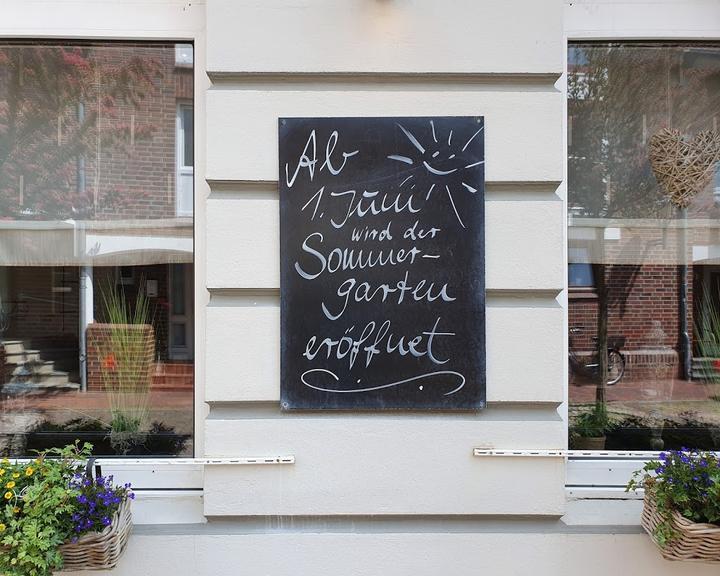 Ab
1. Juni
wird der
Sommer-
garten
eröffnet